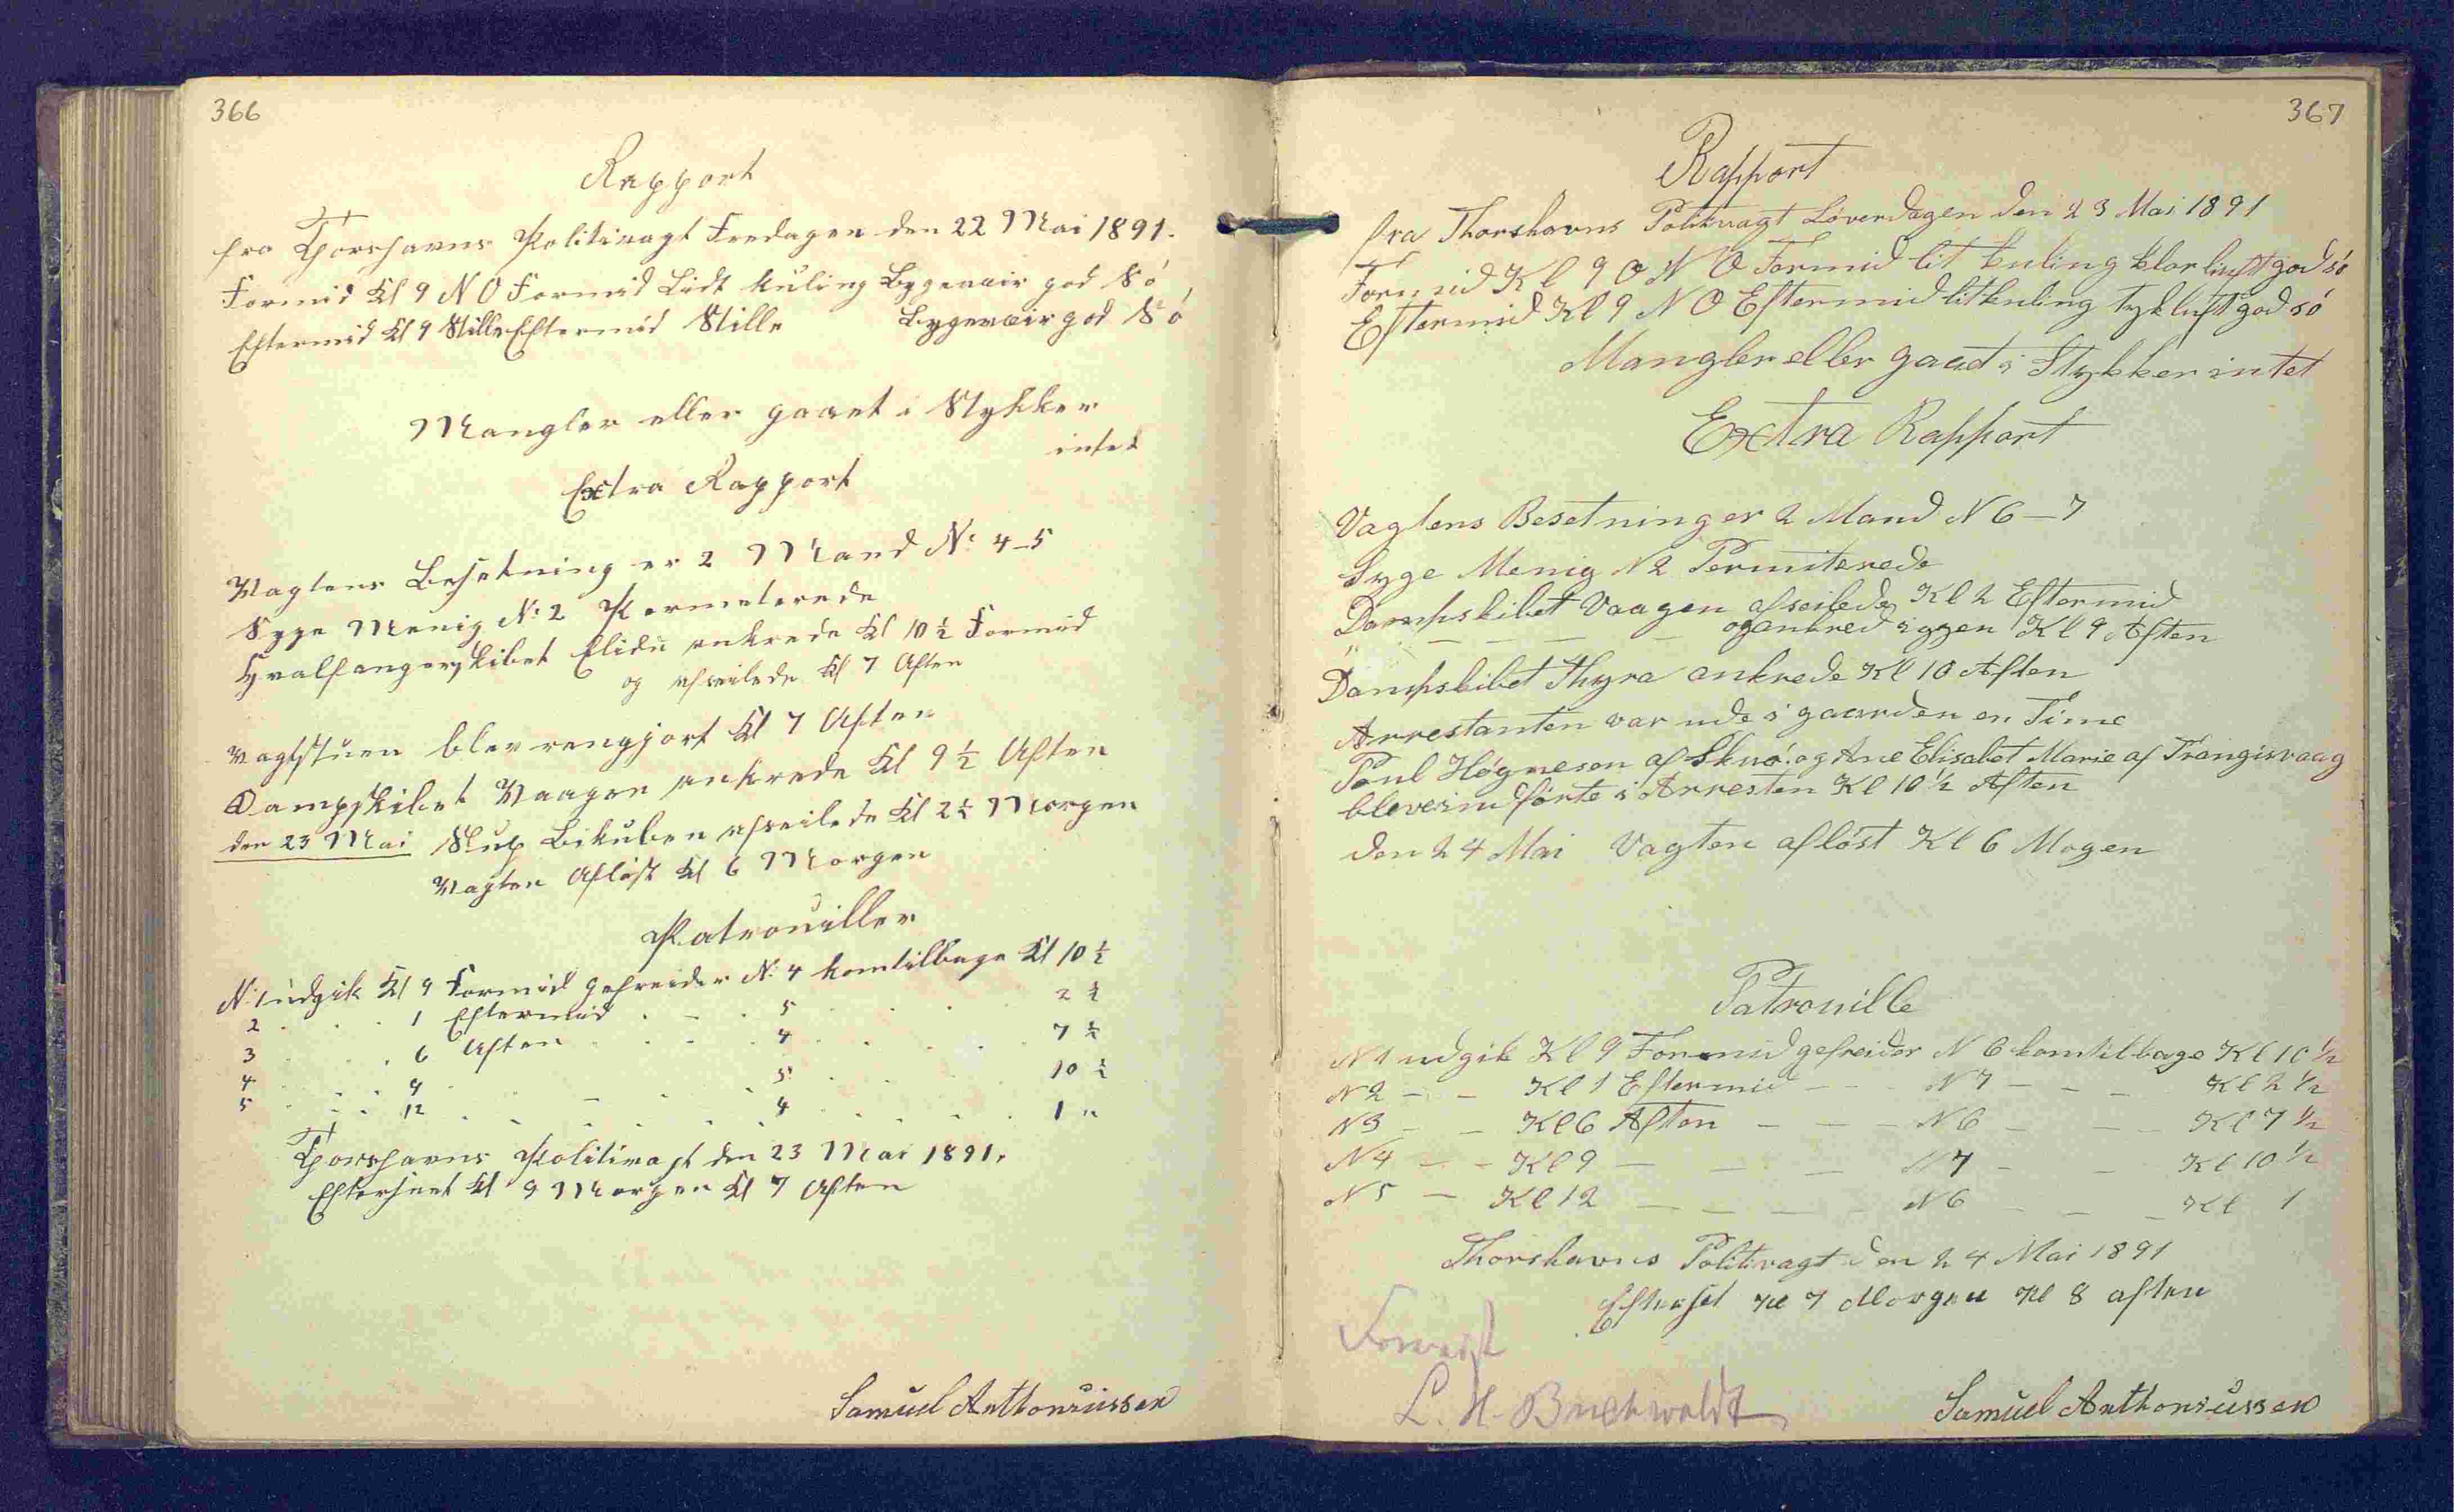 366
Rapport
fra Thorshavns Politivagt Fredagen den 22 Mai 1891.
Formid Kl 9 N O Formid Lidt kuling Bygeveir god Sö
Eftermid Kl 9 Stille Eftermid Stille Bygeveir god Sö
Mangler eller gaaet i Stykker
intet
Extra Rapport
Vagtens Besetning er 2 Mand No 4-5
Syge Menig No 2 Permeterede
Hvalfangerskibet Elida ankrede Kl 10 ½ Formid
og afseilede Kl 7 Aften
Vagtstuen blev rengjort Kl 7 Aften
Dampskibet Vaagen ankrede Kl 9 ½ Aften
den 23 Mai Slup Bikuben afseilede Kl 2 ½ Morgen
Vagten Aflöst Kl 6 Morgen
Patrouiller
No 1 udgik Kl 9 Formid gefreider No 4 kom tilbage Kl 10 ½
2 . . . 1 Eftermid . - . 5 . . . 2 ½
3 . . . 6 Aften . . . 4 . . . 7 ½
4 . . . 9 . - . 5 . . . 10 ½
5 . . . 12 . - . 4 . . . 1 "
Thorshavns Politivagt den 23 Mai 1891.
Efterseet Kl 9 Morgen Kl 7 Aften
Samuel Anthoniussen
367
Rapport
fra Thorshavns Politivagt Löverdagen den 23 Mai 1891
Formid Kl 9 O N O Formid lit kuling klar luft god sö
Eftermid Kl 9 N O Eftermid lit kuling tyk luft god sö
Mangler eller gaaet i Stykker intet
Extra Rapport
Vagtens Besetning er 2 Mand N 6-7
Syge Menig N 2 Permiterede
Dampskibet Vaagen afseilede Kl 2 Eftermid
" - - - og ankred iggen Kl 9 Aften
Dampskibet Thyra ankrede Kl 10 Aften
Arrestanten var ude i gaarden en Time
Poul Høgnesen af Skuö og Ane Elisabet Marie af Trangisvaag
bleve indförte i Arresten Kl 10 ½ Aften
den 24 Mai Vagten aflöst Kl 6 Mogen
Patrouille
N 1 udgik Kl 9 Formid gefreider N 6 kom tilbage Kl 10 ½
N 2 - - Kl 1 Eftermid - - - N 7 - - Kl 2 ½
N 3 - - Kl 6 Aften - - - N 6 - - - Kl 7 ½
N 4 - - Kl 9 - - - N 7 - - Kl 10 ½
N 5 - Kl 12 - - - - N 6 - - - Kl 1
Thorshavns Politivagt den 24 Mai 1891
Efterset Kl 7 Morgen Kl 8 aften
Forevist
L. H. Buchwaldt
Samuel Anthoniussen